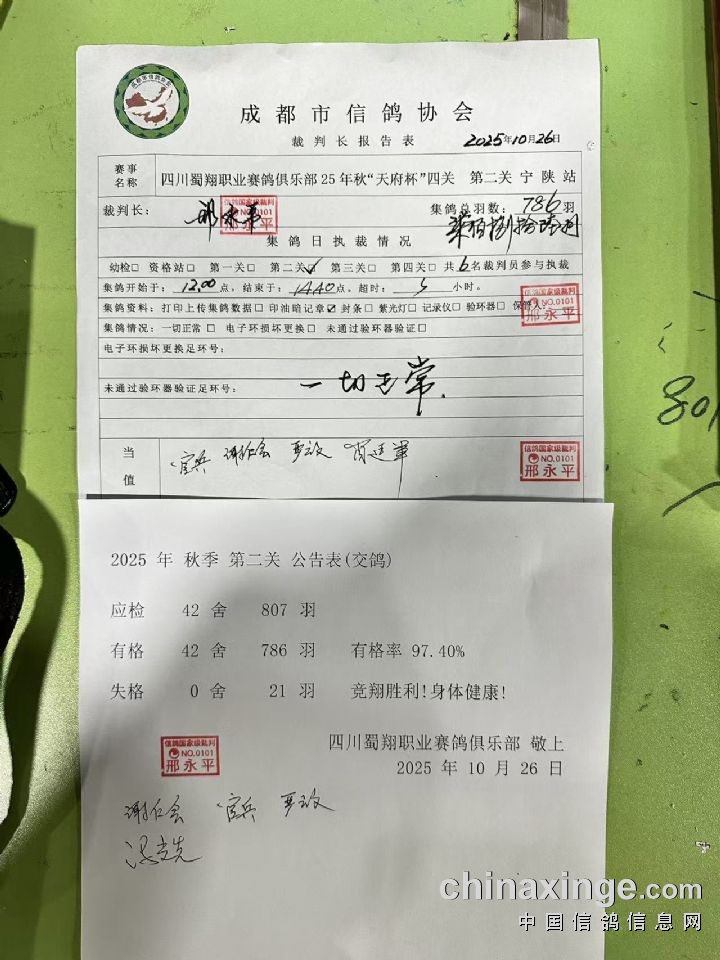 成都市信鸽协会
裁判长报告表 2025年10月26日
赛事名称 四川蜀翔职业赛鸽俱乐部25年秋“天府杯”四关 第二关 宁陕站
裁判长: 邢永平 信鸽国家级裁判 NO.0101 邢永平 集鸽总羽数: 786羽
集鸽日执裁情况 柒佰捌拾陆羽
幼检□ 资格站□ 第一关□ 第二关☑ 第三关□ 第四关□ 共6名裁判员参与执裁
集鸽开始于: 12.00点, 结束于: 14.40点。超时: 小时。
集鸽资料: 打印上传集鸽数据□ 印油暗记章☑ 封条□ 紫光灯□ 记录仪□ 验环器□ 保管人:
信鸽国家级裁判 NO.0101 邢永平
集鸽情况: 一切正常□ 电子环损坏更换□ 未通过验环器验证□
电子环损坏更换足环号:
未通过验环器验证足环号: 一切正常.
当值 官兵
信鸽国家级裁判 NO.0101 邢永平
801
2025 年 秋季 第二关 公告表(交鸽)
应检 42 舍 807 羽
有格 42 舍 786 羽 有格率 97.40%
失格 0 舍 21 羽 竞翔胜利!身体健康!
四川蜀翔职业赛鸽俱乐部 敬上
2025 年 10 月 26 日
信鸽国家级裁判 NO.0101 邢永平
官兵
chinaxinge.com
中国信鸽信息网